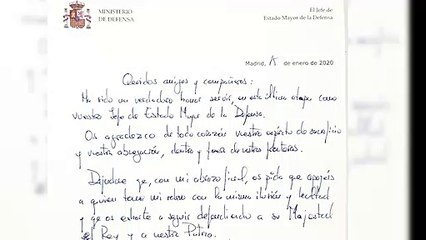 MINISTERIO
DE DEFENSA
El Jefe de
Estado Mayor de la Defensa
Madrid, de enero de 2020
Queridos amigos y compañeros:
Ha sido un verdadero honor servir, en esta última etapa como
vuestro Jefe de Estado Mayor de la Defensa.
Os agradezco de todo corazón vuestro espíritu de sacrificio
y vuestra abnegación, dentro y fuera de nuestras fronteras.
Dejadme que, con mi abrazo final, os pida que apoyéis
a quien tome mi relevo con la misma ilusión y lealtad
y que os exhorte a seguir defendiendo a su Majestad
el Rey y a nuestra Patria.